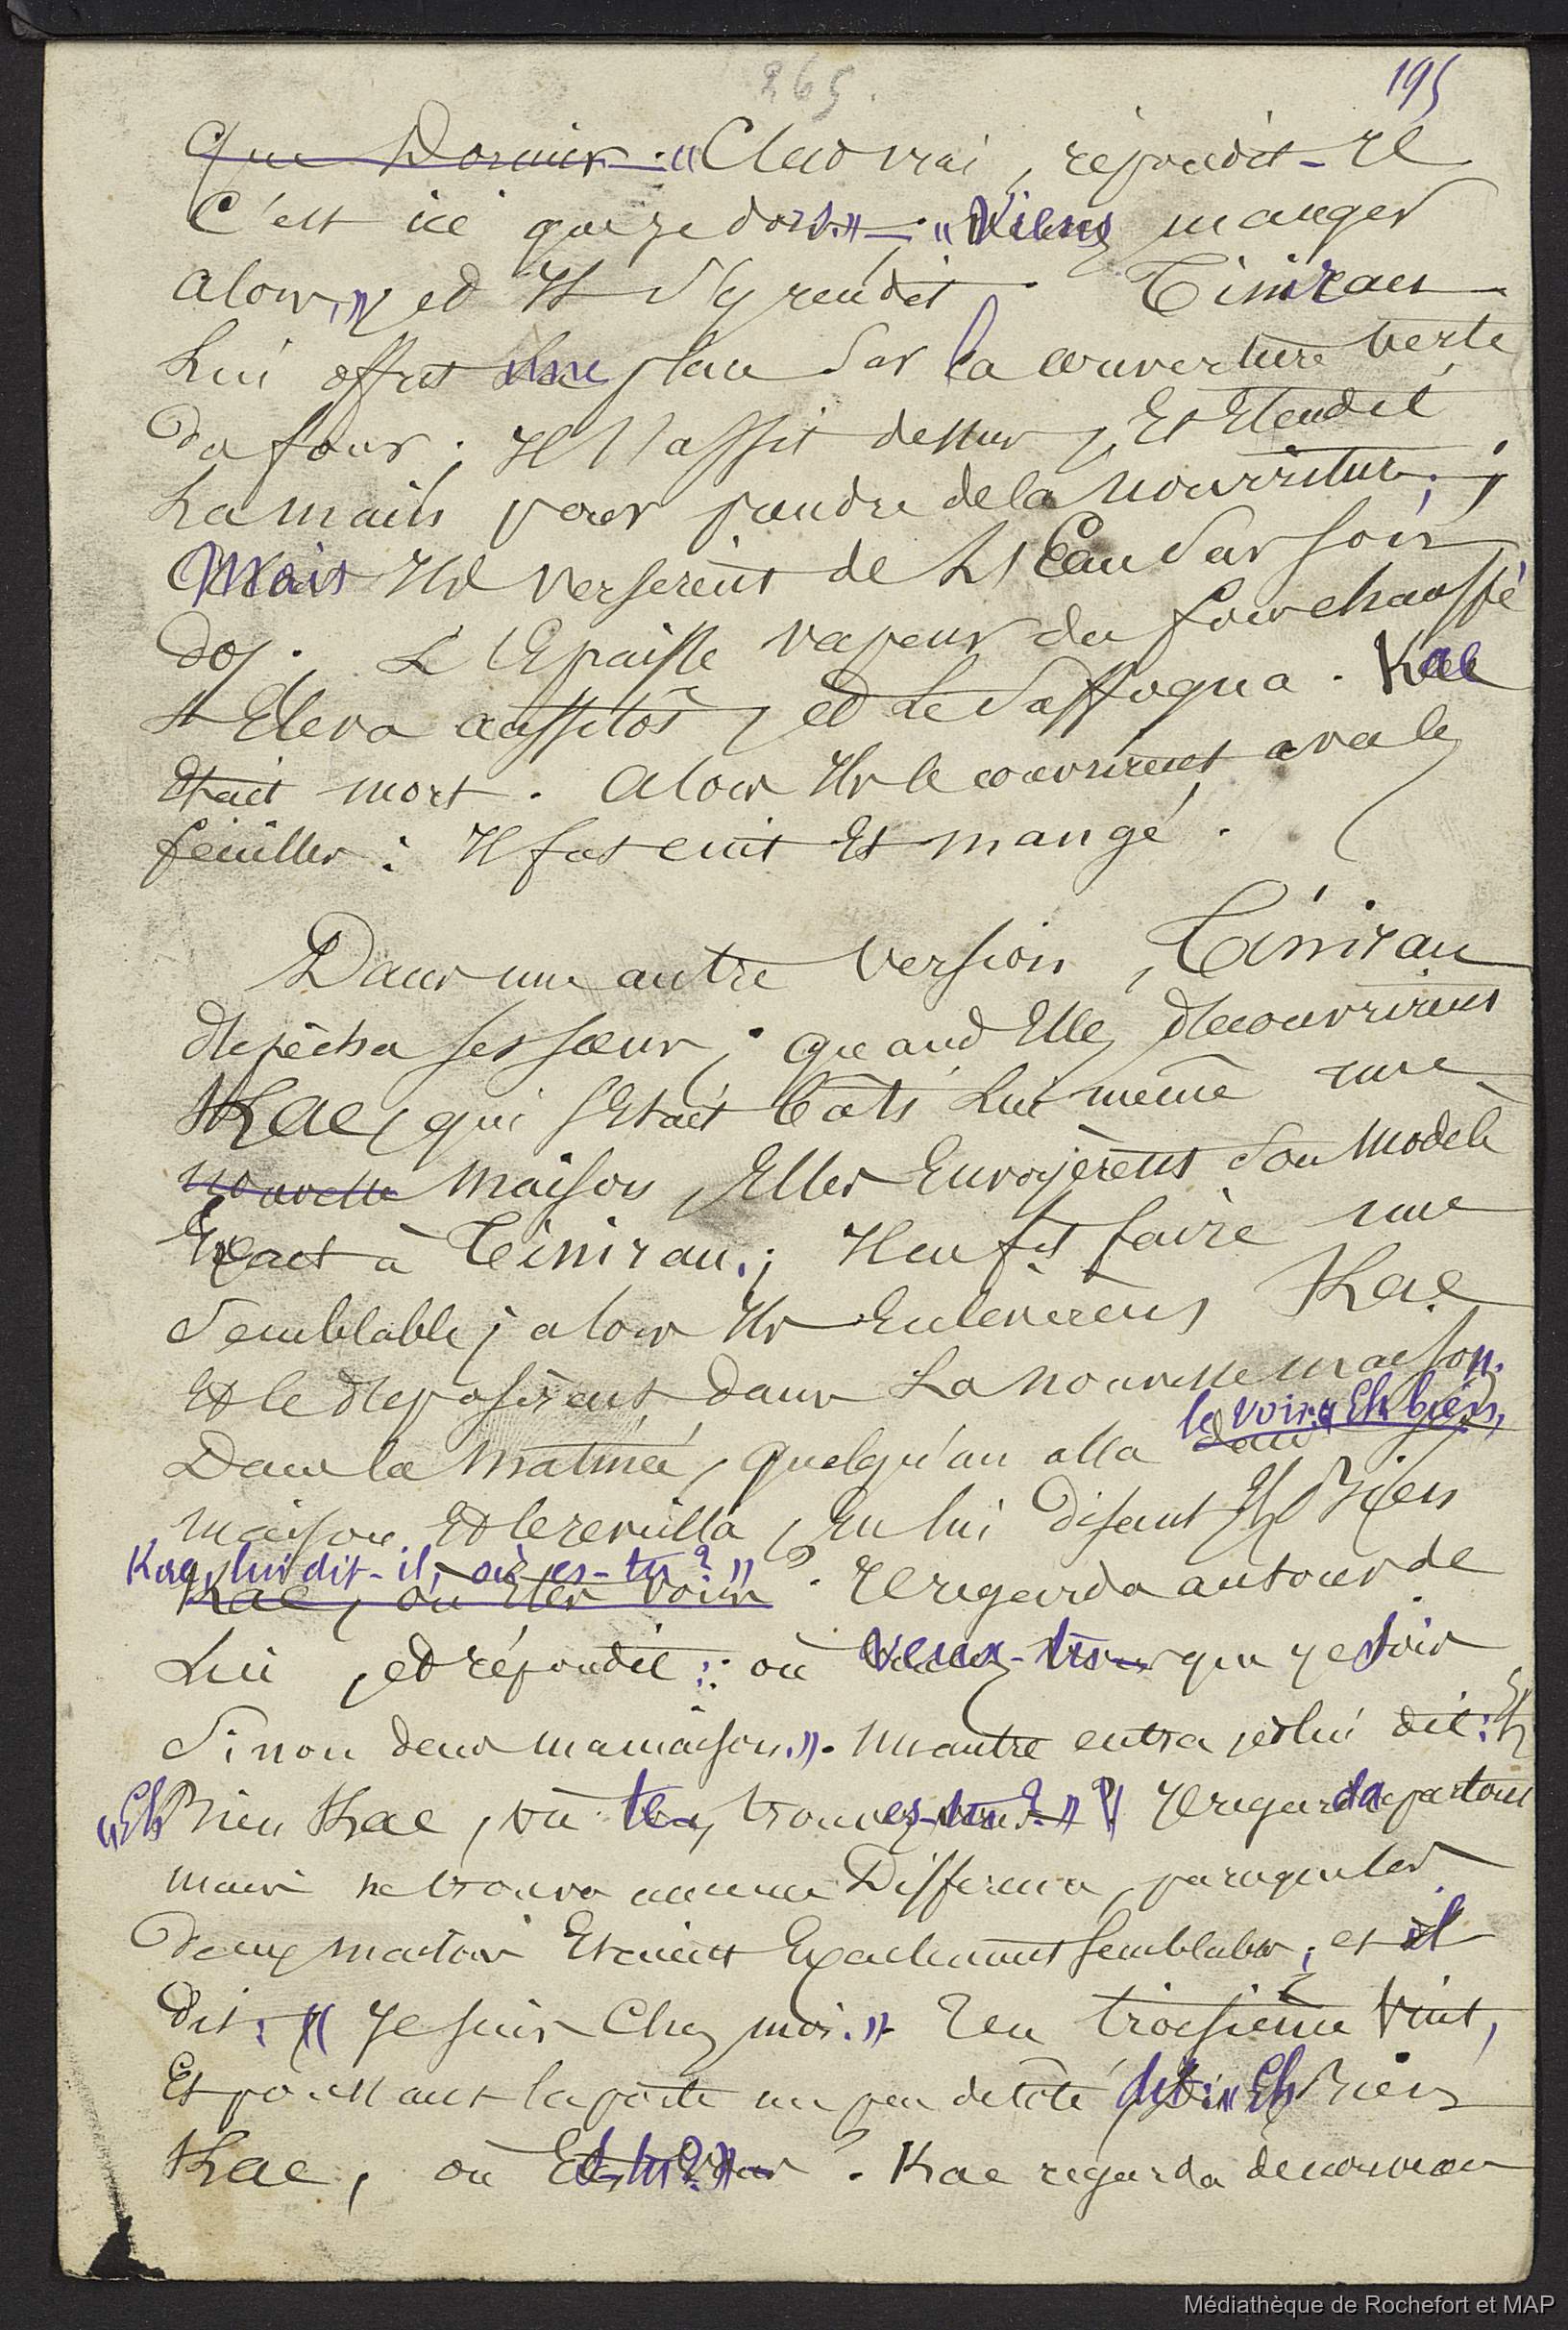 265.
195
que Dormir. « C'est vrai, répondit-il
C'est ici que je dors. » — « Viens manger
alors, » et Il s'y rendit. Tinirau
Lui offrit une place Sur la couverture verte
du four ; Il s'assit dessus, Et Etendit
La main pour prendre de la nourriture ;
Mais Ils versèrent de L'Eau Sur son
dos. L'Epaisse vapeur du four chauffé
s'Eleva aussitôt, et Le Suffoqua. Kae
Etait mort. Alors Ils le couvrirent avec les
feuilles : Il fut cuit Et mangé.
Dans une autre Version, Tinirau
dépêcha ses sœurs ; quand Elles découvrirent
Kae, qui s'Etait bâti Lui même une
nouvelle Maison, Elles Envoyèrent Son Modèle
Exact à Tinirau ; Il en fit faire une
Semblable ; alors Ils Enlevèrent Kae
Et le déposèrent dans La nouvelle maison.
le voir. « Eh bien,
Dans la Matinée, quelqu'un alla dans
maison Et le reveilla, En lui disant Eh Bien
Kae, lui dit-il, où es-tu ? »
Kae, où Etes vous ? Il regarda autour de
Lui, et répondit : où veux-tu que je sois
Sinon dans ma maison. » Un autre entra, et lui dit : Eh
« Eh Bien Kae, où te trouves-tu ? » Il regarda partout
mais ne trouva aucune Différence, parceque les
deux maisons Etaient Exactement semblables ; et il
dit : « Je suis Chez moi. » Un troisième Vint,
Et poussant la porte un peu de côté dit : « Eh Bien
Kae, où Es-tu ? » Kae regarda de nouveau
Médiathèque de Rochefort et MAP